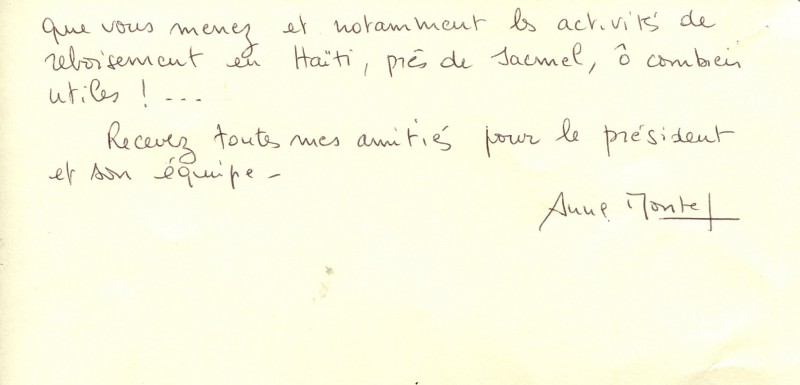 que vous menez et notamment les activités de
reboisement en Haïti, près de Jacmel, ô combien
utiles ! ...
Recevez toutes mes amitiés pour le président
et son équipe -
Anne